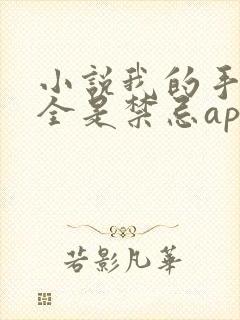 小説我的手
全是禁忌ap
若影凡華